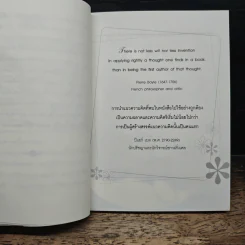 There is not less wit nor less invention
in applying rightly a thought one finds in a book,
than in being the first author of that thought.
Pierre Bayle (1647-1706)
French philosopher and critic
การนำแนวความคิดที่พบในหนังสือไปใช้อย่างถูกต้อง
เป็นความฉลาดและความคิดริเริ่มไม่น้อยไปกว่า
การเป็นผู้สร้างสรรค์แนวความคิดนั้นเป็นคนแรก
ปิแอร์ เบล (ค.ศ. 1647-1706)
นักปรัชญาและนักวิจารณ์ชาวฝรั่งเศส